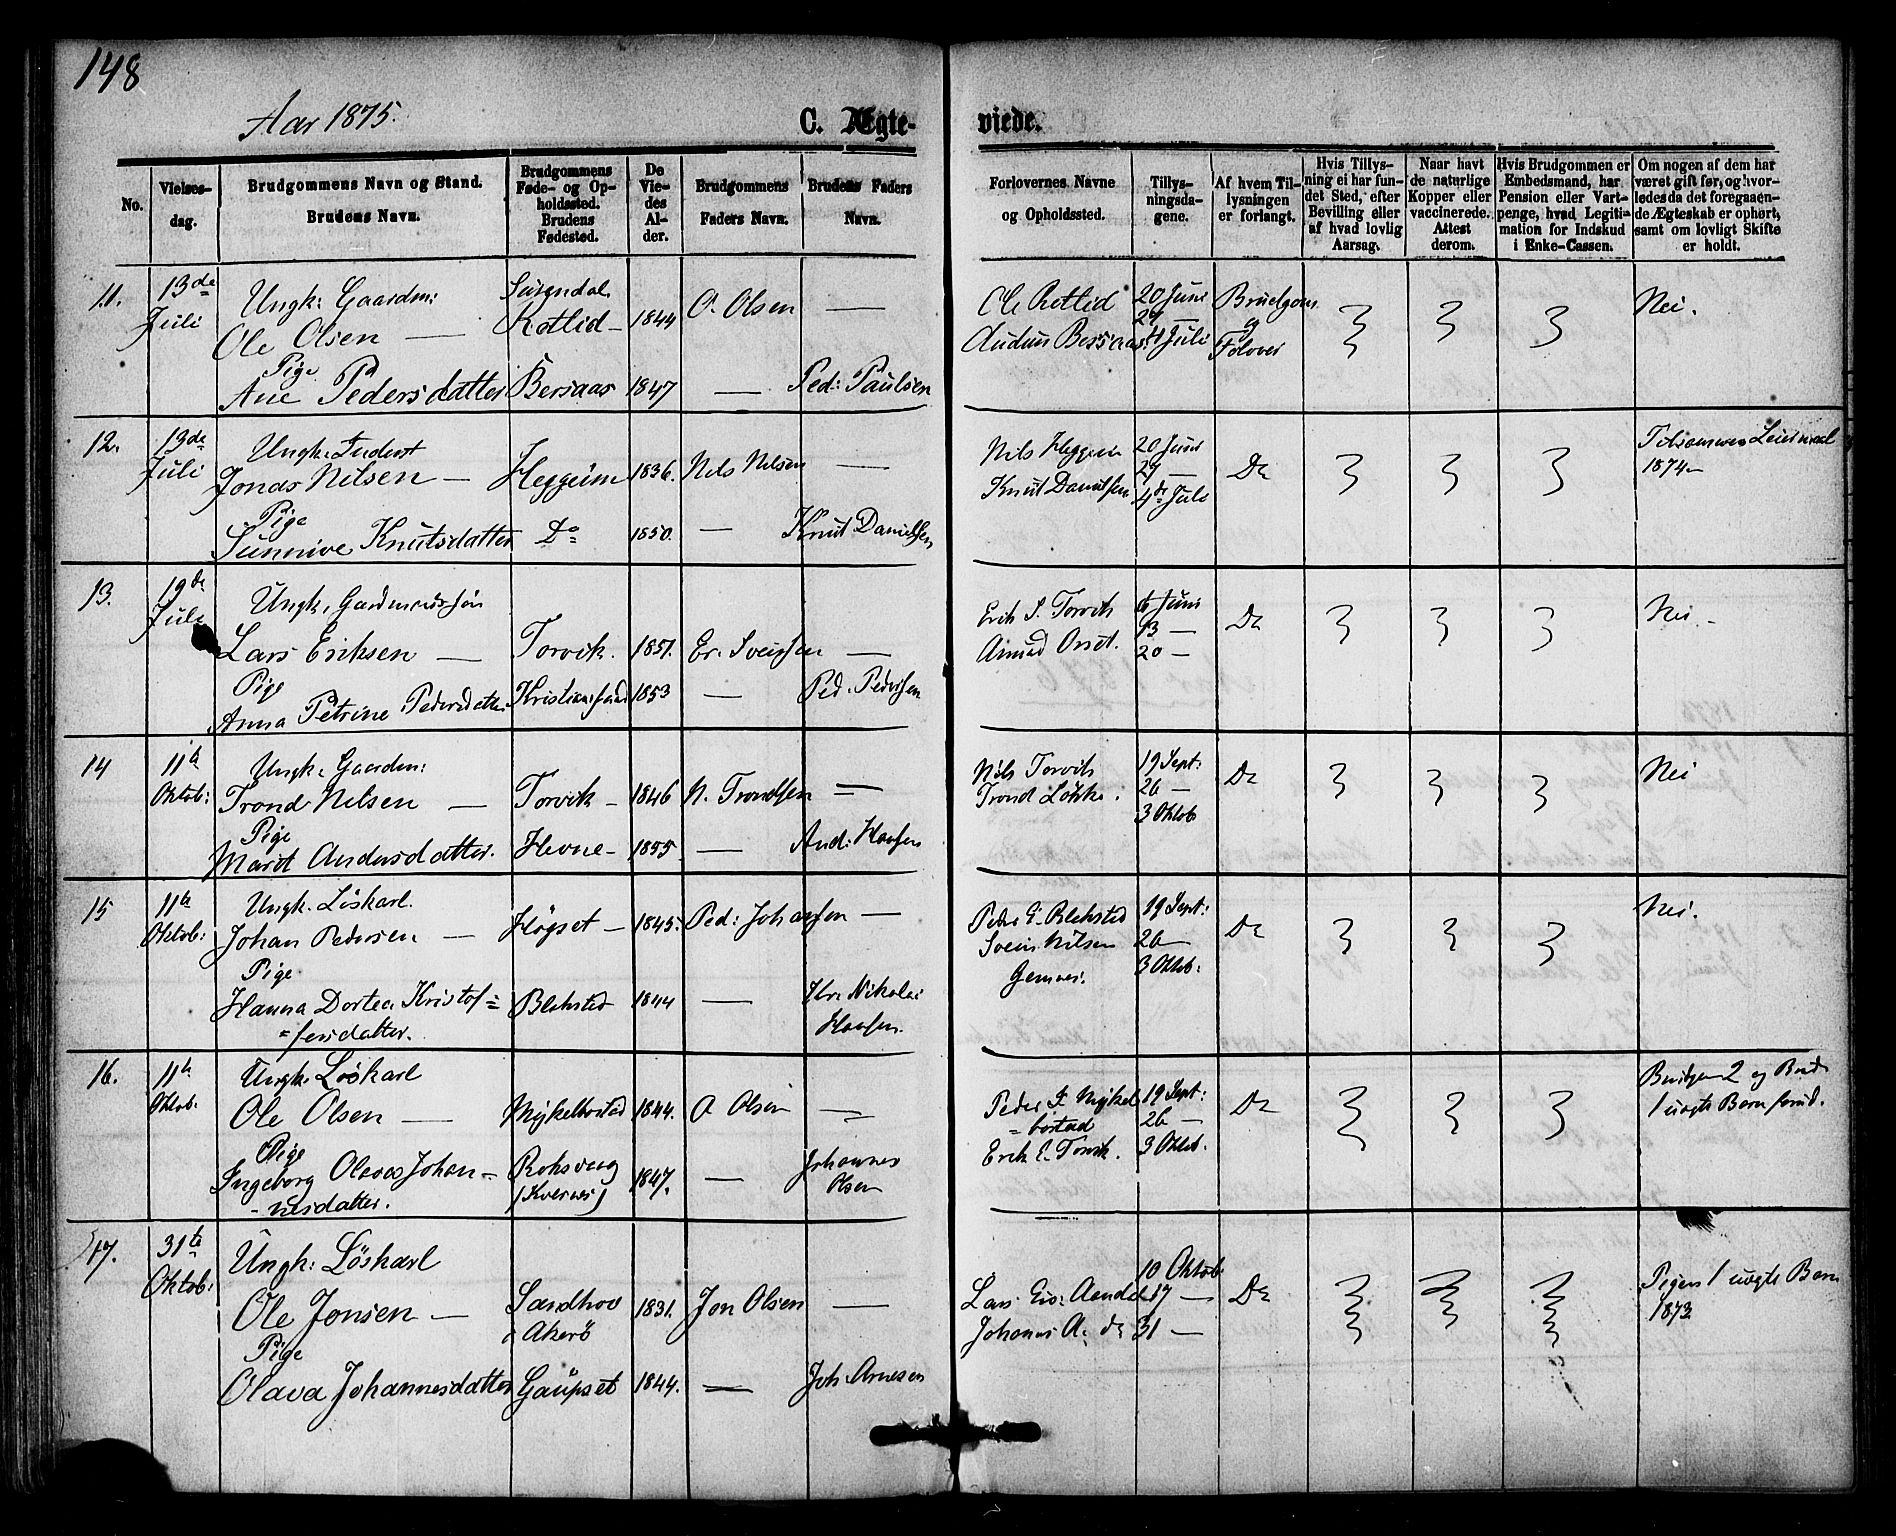 148
Aar 1875.
C. Ægte-
viede.
No.
Vielses-
dag.
Brudgommens Navn og Stand.
Brudens Navn.
Brudgommens
Føde- og Op-
holdssted.
Brudens
Fødested.
De
Vie-
des
Al-
der.
Brudgommens
Faders Navn.
Brudens Faders
Navn.
Forlovernes Navne
og Opholdssted.
Tillys-
ningsda-
gene.
Af hvem Til-
lysningen
er forlangt.
Hvis Tillys-
ning ei har fun-
det Sted, efter
Bevilling eller
af hvad lovlig
Aarsag.
Naar havt
de naturlige
Kopper eller
vaccinerede.
Attest
derom.
Hvis Brudgommen er
Embedsmand, har
Pension eller Vart-
penge, hvad Legiti-
mation for Indskud
i Enke-Cassen.
Om nogen af dem har
været gift før, og hvor-
ledes da det foregaaen-
de Ægteskab er ophørt,
samt om lovligt Skifte
er holdt.
11.
13de
Juli
Ungk: Gaardm:
Ole Olsen —
Surendal
Kotlid —
1844
O. Olsen
—
Pige
Ane Pedersdatter
Bersaas
1847
—
Ped: Paulsen
Ole Rotlid
Audun Bersaas
20 Juni
27 —
4 Juli
Brudgom
og
Forlover
Nei.
12.
13de
Juli
Ungk. Inderst
Jonas Nilsen —
Heggeim
1836.
Nils Nilsen
—
Pige
Sunnive Knutsdatter
Do
1850.
—
Knut Danielsen
Nils Heggeim
Knut Danielsen
20 Juni
27 —
4de Juli
Do
Tilsammen Leiermaal
1874 —
13.
19de
Juli
Ungk. Gardmandssøn
Lars Eriksen —
Torvik.
1851.
Er. Sveinsen
—
Pige
Anna Petrine Pedersdatter
Kristiansund
1853
—
Ped. Pedersen
Erik S. Torvik
Amund Orset.
6 Juni
13 —
20 —
Do
Nei —
14
11te
Oktob:
Ungk: Gaardm:
Trond Nilsen —
Torvik —
1846
N. Trondsen
—
Pige
Marit Andersdatter.
Hevne —
1855
—
And: Hansen
Nils Torvik
Trond Løkke.
19 Sept:
26 —
3 Oktob
Do
Nei
15
11te
Oktob:
Ungk. Löskarl.
Johan Pedersen —
Högset —
1845.
Ped: Johansen
—
Pige
Hanna Dortea Kristof =
= fersdatter.
Bleksted
1844
—
Kr. Nikolai
Hansen.
Peder E. Bleksted
Svein Nilsen
Gemnes.
19 Sept:
26 —
3 Oktob:
Do
Nei.
16.
11te
Oktob:
Ungk. Löskarl
Ole Olsen —
Mykelbostad
1844.
O Olsen
—
Pige
Ingeborg Olava Johan =
- nesdatter.
Roksvug
(Kvernes)
1847.
—
Johannes
Olsen
Peder I. Mykel
= bostad
Erik E. Torvik.
19 Sept:
26 —
3 Oktob.
Do
Brudgom 2 og Brud
1 uægte Barn forud.
17.
31te
Oktob:
Ungk: Löskarl
Ole Jonsen —
Sandhov
i Akerö
1831.
Jon Olsen
—
Pige
Olava Johannesdatter
Gaupset
1844.
—
Joh. Arnesen
Lars
Johannes A. do
10 Oktob
17 —
31 —
Do
Pigen 1 uægte Barn
1873